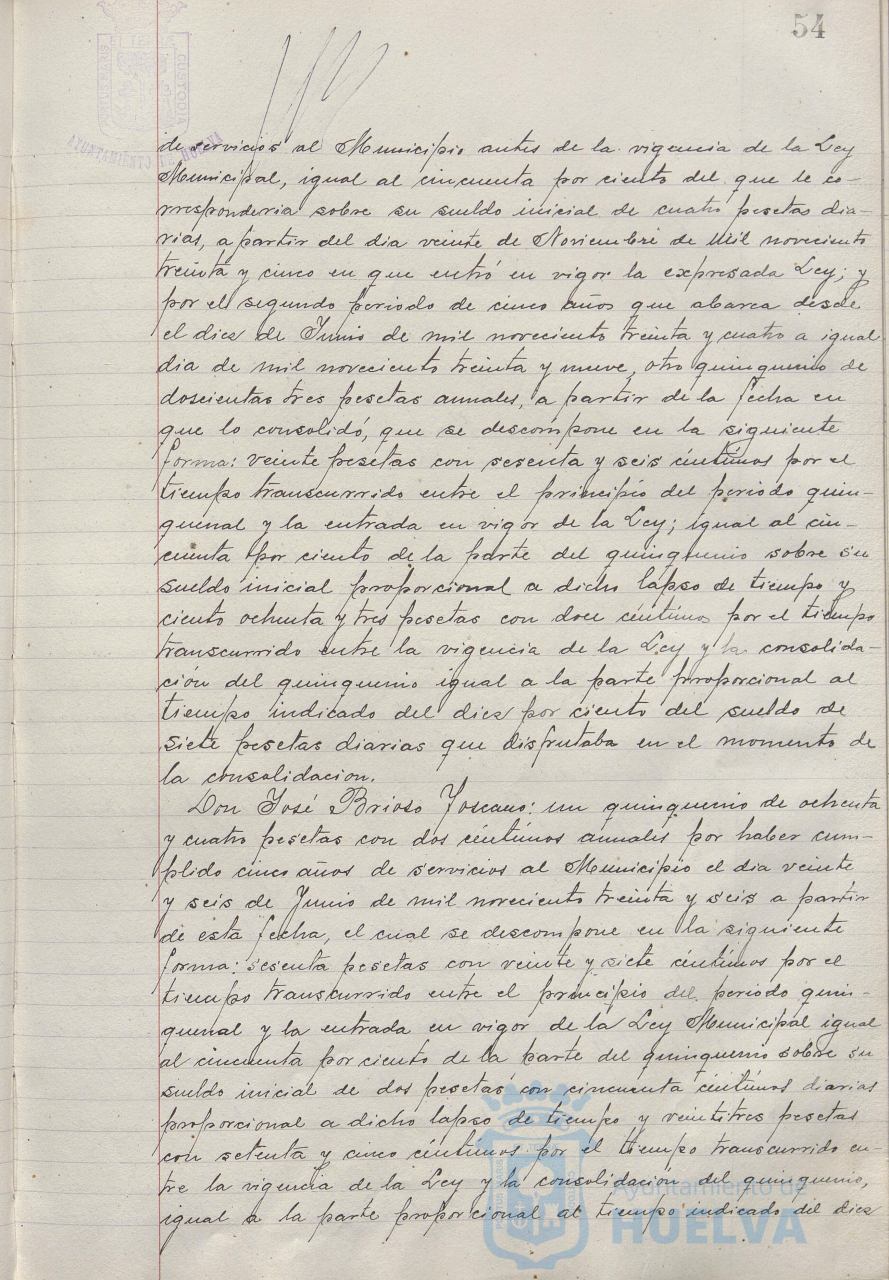 54
PORTUS MARIS
CUSTODIA
AYUNTAMIENTO DE HUELVA
de servicios al Municipio antes de la vigencia de la Ley
Municipal, igual al cincuenta por ciento del que le co-
rresponderia sobre su sueldo inicial de cuatro pesetas dia-
rias, a partir del dia veinte de Noviembre de mil novecientos
treinta y cinco en que entró en vigor la expresada Ley; y
por el segundo periodo de cinco años que abarca desde
el diez de Junio de mil novecientos treinta y cuatro a igual
dia de mil novecientos treinta y nueve, otro quinquenio de
doscientas tres pesetas annales, a partir de la fecha en
que lo consolidó, que se descompone en la siguiente
forma: veinte pesetas con sesenta y seis céntimos por el
tiempo transcurrido entre el principio del periodo quin-
quenal y la entrada en vigor de la Ley; igual al cin-
cuenta por ciento de la parte del quinquenio sobre su
sueldo inicial proporcional a dicho lapso de tiempo y
ciento ochenta y tres pesetas con doce céntimos por el tiempo
transcurrido entre la vigencia de la Ley y la consolida-
ción del quinquenio igual a la parte proporcional al
tiempo indicado del diez por ciento del sueldo de
siete pesetas diarias que disfrutaba en el momento de
la consolidacion.
Don José Brioso Toscano: un quinquenio de ochenta
y cuatro pesetas con dos céntimos annales por haber cum-
plido cinco años de servicios al Municipio el dia veinte
y seis de Junio de mil novecientos treinta y seis a partir
de esta fecha, el cual se descompone en la siguiente
forma: sesenta pesetas con veinte y siete céntimos por el
tiempo transcurrido entre el principio del periodo quin-
quenal y la entrada en vigor de la Ley Municipal igual
al cincuenta por ciento de la parte del quinquenio sobre su
sueldo inicial de dos pesetas con cincuenta céntimos diarias
proporcional a dicho lapso de tiempo y veintitres pesetas
con setenta y cinco céntimos por el tiempo transcurrido en-
tre la vigencia de la Ley y la consolidación del quinquenio,
igual a la parte proporcional al tiempo indicado del diez
Ayuntamiento de
HUELVA